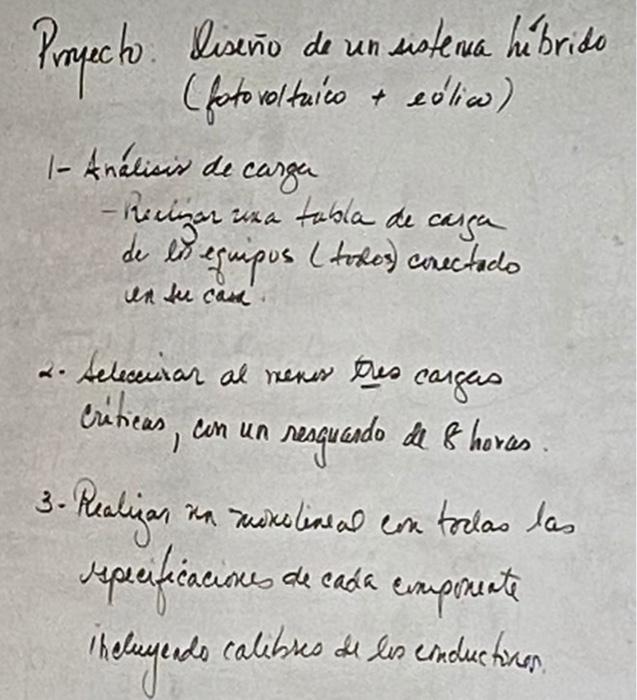 Proyecto. Diseño de un sistema híbrido
(fotovoltaíco + eólico)
1- Análisis de carga
- Realizar una tabla de carga
de los equipos (todos) conectado
en su casa.
2. Seleccionar al menos tres cargas
críticas, con un resguardo de 8 horas.
3- Realizar un monolineal con todas las
especificaciones de cada componente
incluyendo calibres de los conductores.